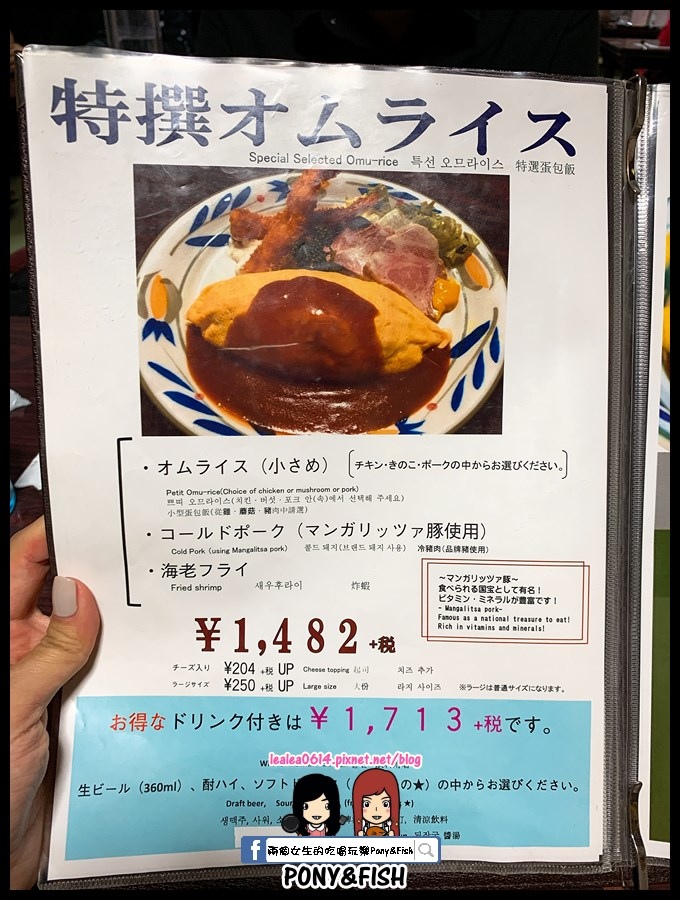 特撰オムライス
Special Selected Omu-rice 특선 오므라이스 特選蛋包飯
・オムライス（小さめ）〔チキン・きのこ・ポークの中からお選びください。〕
Petit Omu-rice(Choice of chicken or mushroom or pork)
쁘띠 오므라이스(치킨・버섯・포크 안(속)에서 선택해 주세요)
小型蛋包飯(從雞・蘑菇・豬肉中請選)
・コールドポーク（マンガリッツァ豚使用）
Cold Pork (using Mangalitsa pork) 콜드 돼지(브랜드 돼지 사용) 冷豬肉(品牌豬使用)
・海老フライ
Fried shrimp 새우후라이 炸蝦
～マンガリッツァ豚～
食べられる国宝として有名！
ビタミン・ミネラルが豊富です！
~ Mangalitsa pork~
Famous as a national treasure to eat!
Rich in vitamins and minerals!
￥1,482 +税
チーズ入り ¥204 +税 UP Cheese topping 起司 치즈 추가
ラージサイズ ¥250 +税 UP Large size 大份 라지 사이즈 ※ラージは普通サイズになります。
お得なドリンク付きは￥1,713+税です。
lealea0614.pixnet.net/blog
生ビール（360ml）、酎ハイ、ソフトド の★）の中からお選びください。
Draft beer, Sour ★)
생맥주, 사워, 清涼飲料
된장국 醬湯
f 兩個女生的吃喝玩樂Pony&Fish
PONY&FISH